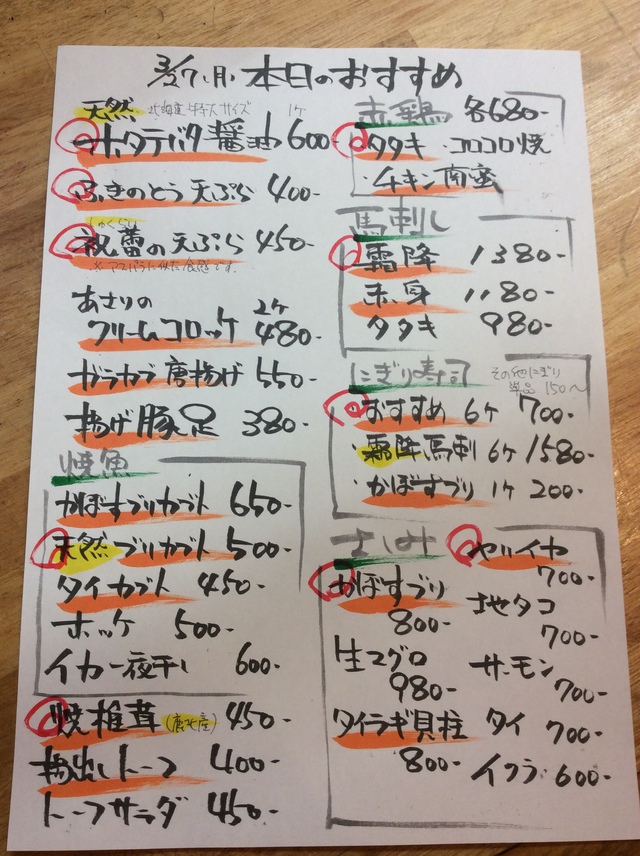 3/27(月)本日のおすすめ
天然 北海道 特大サイズ 1ケ
ホタテバター醤油 600-
ふきのとう天ぷら 400-
しゅくらい
祝蕾の天ぷら 450-
※アスパラに似た食感です。
あさりの
クリームコロッケ 2ケ 480-
ガラカブ唐揚げ 550-
揚げ豚足 380-
焼魚
かぼすブリカブト 650-
天然ブリカブト 500-
タイカブト 450-
ホッケ 500-
イカ一夜干し 600-
焼椎茸 450-
揚出しトーフ 400-
トーフサラダ 450-
赤鶏 各680-
タタキ ・コロコロ焼
・チキン南蛮
馬刺し
霜降 1380-
赤身 1180-
タタキ 980-
にぎり寿司 その他にぎり
単品 150〜
おすすめ 6ケ 700-
・霜降馬刺 6ケ 1580-
・かぼすブリ 1ケ 200-
さしみ
かぼすブリ
800-
生マグロ
980-
タイラギ貝柱
800-
ヤリイカ
700-
地タコ
700-
サーモン
700-
タイ 700-
イクラ 600-